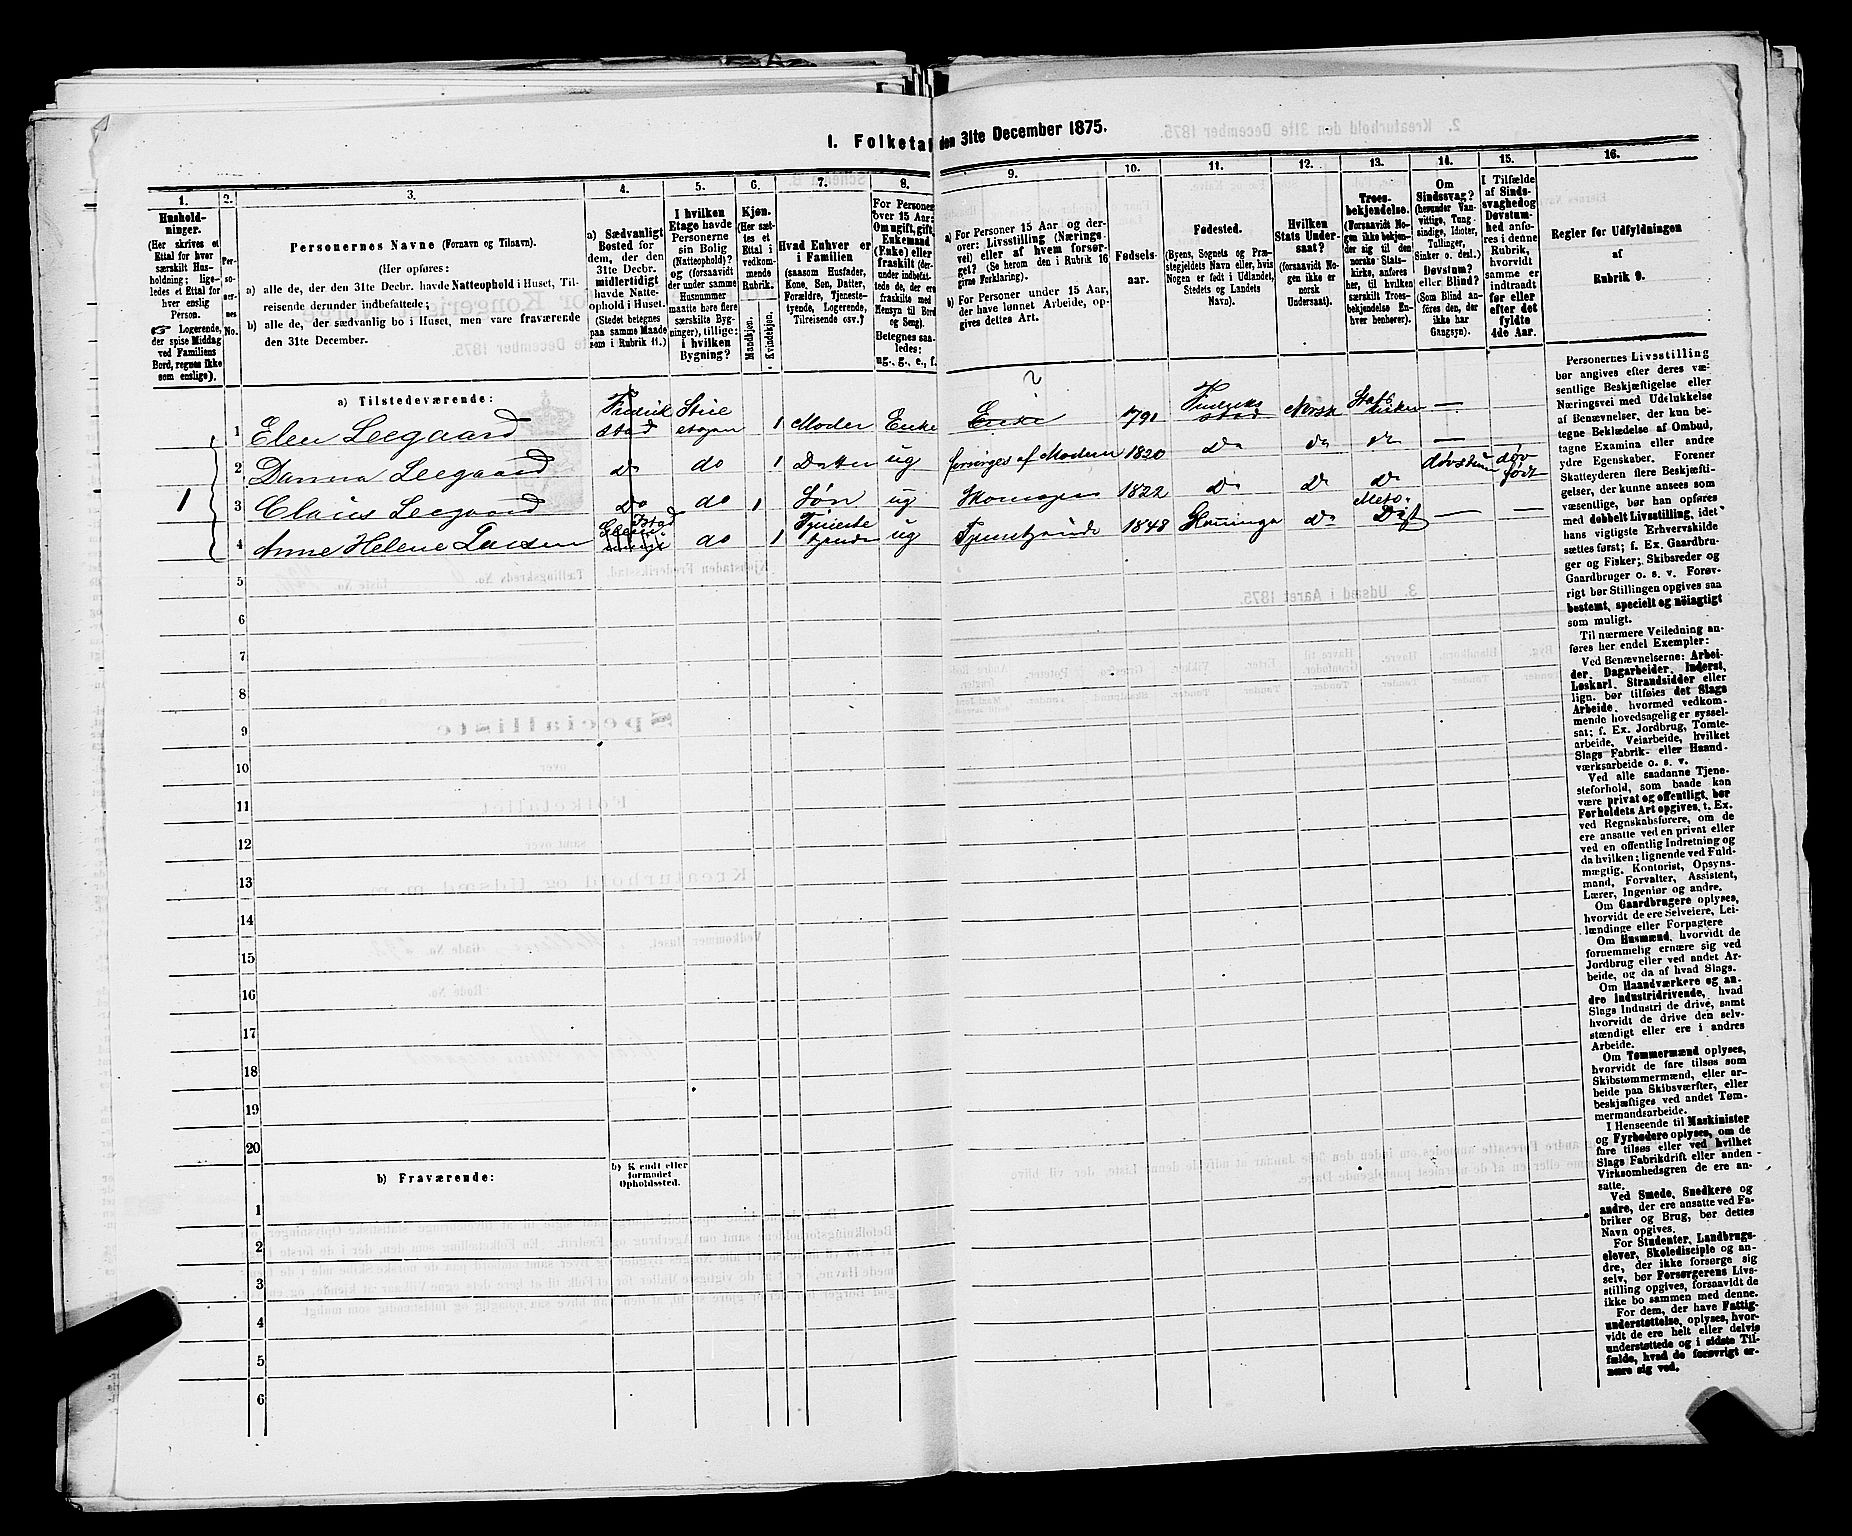 I. Folketal den 31te December 1875.
1.
Hushold-
ninger.
(Her skrives et
Ettal for hver
særskilt Hus-
holdning; lige-
ledes et Ettal for
hver enslig
Person.
☞ Logerende,
der spise Middag
ved Familiens
Bord, regnes ikke
som enslige).
2.
Per-
so-
ner-
nes
No.
3.
Personernes Navne (Fornavn og Tilnavn).
(Her opføres:
a) alle de, der den 31te Decbr. havde Natteophold i Huset, Til-
reisende derunder indbefattede;
b) alle de, der sædvanlig bo i Huset, men vare fraværende
den 31te December.
4.
a) Sædvanligt
Bosted for
dem, der den
31te Decbr.
midlertidigt
havde Natte-
ophold i Huset.
(Stedet betegnes
paa samme Maade
som i Rubrik 11.)
5.
I hvilken
Etage havde
Personerne
sin Bolig
(Natteophold)?
og (forsaavidt
der under samme
Husnummer
maatte høre flere
særskilte Byg-
ninger), tillige:
i hvilken
Bygning?
6.
Kjøn.
(Her sæt-
tes et
Ettal i
vedkom-
mende
Rubrik.
Mandkjøn.
Kvindekjøn.
7.
Hvad Enhver er
i Familien
(saasom Husfader,
Kone, Søn, Datter,
Forældre, Tjeneste-
tyende, Logerende,
Tilreisende osv.)
8.
For Personer
over 15 Aar:
Om ugift, gift,
Enkemand
(Enke) eller
fraskilt (der-
under indbefat-
tede de, der ere
fraskilte med
Hensyn til Bord
og Seng).
Betegnes saa-
ledes:
ug., g., e., f.
9.
a) For Personer 15 Aar og der-
over: Livsstilling (Nærings-
vei) eller af hvem forsør-
get? (Se herom den i Rubrik 16
givne Forklaring).
b) For Personer under 15 Aar,
der have lønnet Arbeide, op-
gives dettes Art.
10.
Fødsels-
aar.
11.
Fødested.
(Byens, Sognets og Præ-
stegjeldets Navn eller, hvis
Nogen er født i Udlandet,
Stedets og Landets
Navn).
12.
Hvilken
Stats Under-
saat?
(forsaavidt No-
gen ikke er
norsk
Undersaat).
13.
Troes-
bekjendelse.
(Forsaavidt No-
gen ikke bekjen-
der sig til den
norske Stats-
kirke, anføres
her, til hvilken
særskilt Troes-
bekjendelse En-
hver henhører).
14.
Om
Sindssvag?
(herunder Van-
vittige, Idioter,
Tullinger,
Sinker o. desl.)
Døvstum?
eller Blind?
(Som Blind an-
føres den, der
ikke har
Gangsyn).
15.
I Tilfælde
af Sinds-
svaghed og
Døvstum-
hed anfø-
res i denne
Rubrik,
hvorvidt
samme er
indtraadt
før eller
efter det
fyldte
4de Aar.
16.
Regler for Udfyldningen
af
Rubrik 9.
a) Tilstedeværende:
1 Elen Leegaard Fredrik stad 1ste etagen 1 Moder Enke Enke 1791 Fredriks stad Norsk Stats kirken —
2 Danna Leegaard do do 1 Datter ug forsørges af Moderen 1820 do do do døvstum døv født
1 3 Claus Leegaard do do 1 Søn ug Skomager 1822 do do do
4 Anne Helene Larsen do 1 Tjeneste tyende ug Tjenestyende 1848 do Meto- Dist — —
5
6
7
8
9
10
11
12
13
14
15
16
17
18
19
20
b) Fraværende:
b) Kjendt eller
formodet
Opholdssted.
1
2
3
4
5
6
Personernes Livsstilling
bør angives efter deres væ-
sentlige Beskjæftigelse eller
Næringsvei med Udelukkelse
af Benævnelser, der kun be-
tegne Beklædelse af Ombud,
tagne Examina eller andre
ydre Egenskaber. Forener
Skatteyderen flere Beskjæfti-
gelser, der kunne ansees som
væsentlige, bør han opføres
med dobbelt Livsstilling, idet
hans vigtigste Erhvervskilde
sættes først; f. Ex. Gaardbru-
ger og Fisker; Skibsreder og
Gaardbruger o. s. v. Forøv-
rigt bør Stillingen opgives saa
bestemt, specielt og nöiagtigt
som muligt.
Til nærmere Veiledning an-
føres her endel Exempler:
Ved Benævnelserne: Arbei-
der, Dagarbeider, Inderst,
Løskarl, Strandsidder eller
lign. bør tilføies det Slags
Arbeide, hvormed vedkom-
mende hovedsagelig er syssel-
sat; f. Ex. Jordbrug, Tomte-
arbeide, Veiarbeide, hvilket
Slags Fabrik- eller Haand-
værksarbeide o. s. v.
Ved alle saadanne Tjene-
steforhold, som baade kan
være privat og offentligt, bør
Forholdets Art opgives, t. Ex.
ved Regnskabsførere, om de
ere ansatte ved en privat eller
ved en offentlig Indretning og
da hvilken; lignende ved Fuld-
mægtig, Kontorist, Opsyns-
mand, Forvalter, Assistent,
Lærer, Ingeniør og andre.
Om Gaardbrugere oplyses,
hvorvidt de ere Selveiere, Lei-
lændinge eller Forpagtere
Om Husmænd, hvorvidt de
fornemmelig ernære sig ved
Jordbrug eller ved andet Ar-
beide, og da af hvad Slags.
Om Haandværkere og an-
dre Industridrivende, hvad
Slags Industri de drive, samt
hvorvidt de drive den selv-
stændigt eller ere i andres
Arbeide.
Om Tømmermænd oplyses,
hvorvidt de fare tilsøs som
Skibstømmermænd, eller ar-
beide paa Skibsværfter, eller
beskjæftiges ved andet Tøm-
mermandsarbeide.
I Henseende til Maskinister
og Fyrbødere oplyses, om de
fare tilsøs eller ved hvilket
Slags Fabrikdrift eller anden
Virksomhedsgren de ere an-
satte.
Ved Smede, Snedkere og
andre, der ere ansatte ved Fa-
briker og Brug, bør dettes
Navn opgives.
For Studenter, Landbrugs-
elever, Skoledisciple og an-
dre, der ikke forsørge sig
selv, bør Forsørgerens Livs-
stilling opgives, forsaavidt de
ikke bo sammen med denne.
For dem, der have Fattig-
understøttelse, oplyses, hvor-
vidt de ere helt eller delvis
understøttede og i sidste Til-
fælde, hvad de forøvrigt er-
nære sig ved.